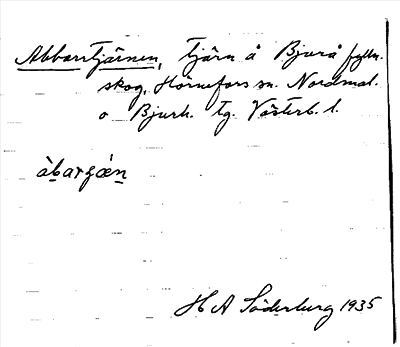 Abborrtjärnen, tjärn å Bjurå fylln.
skog, Hörnefors sn. Nordmal.
o Bjurh. tg. Västerb. l.
àbarʒǽn
H A Söderburg 1935